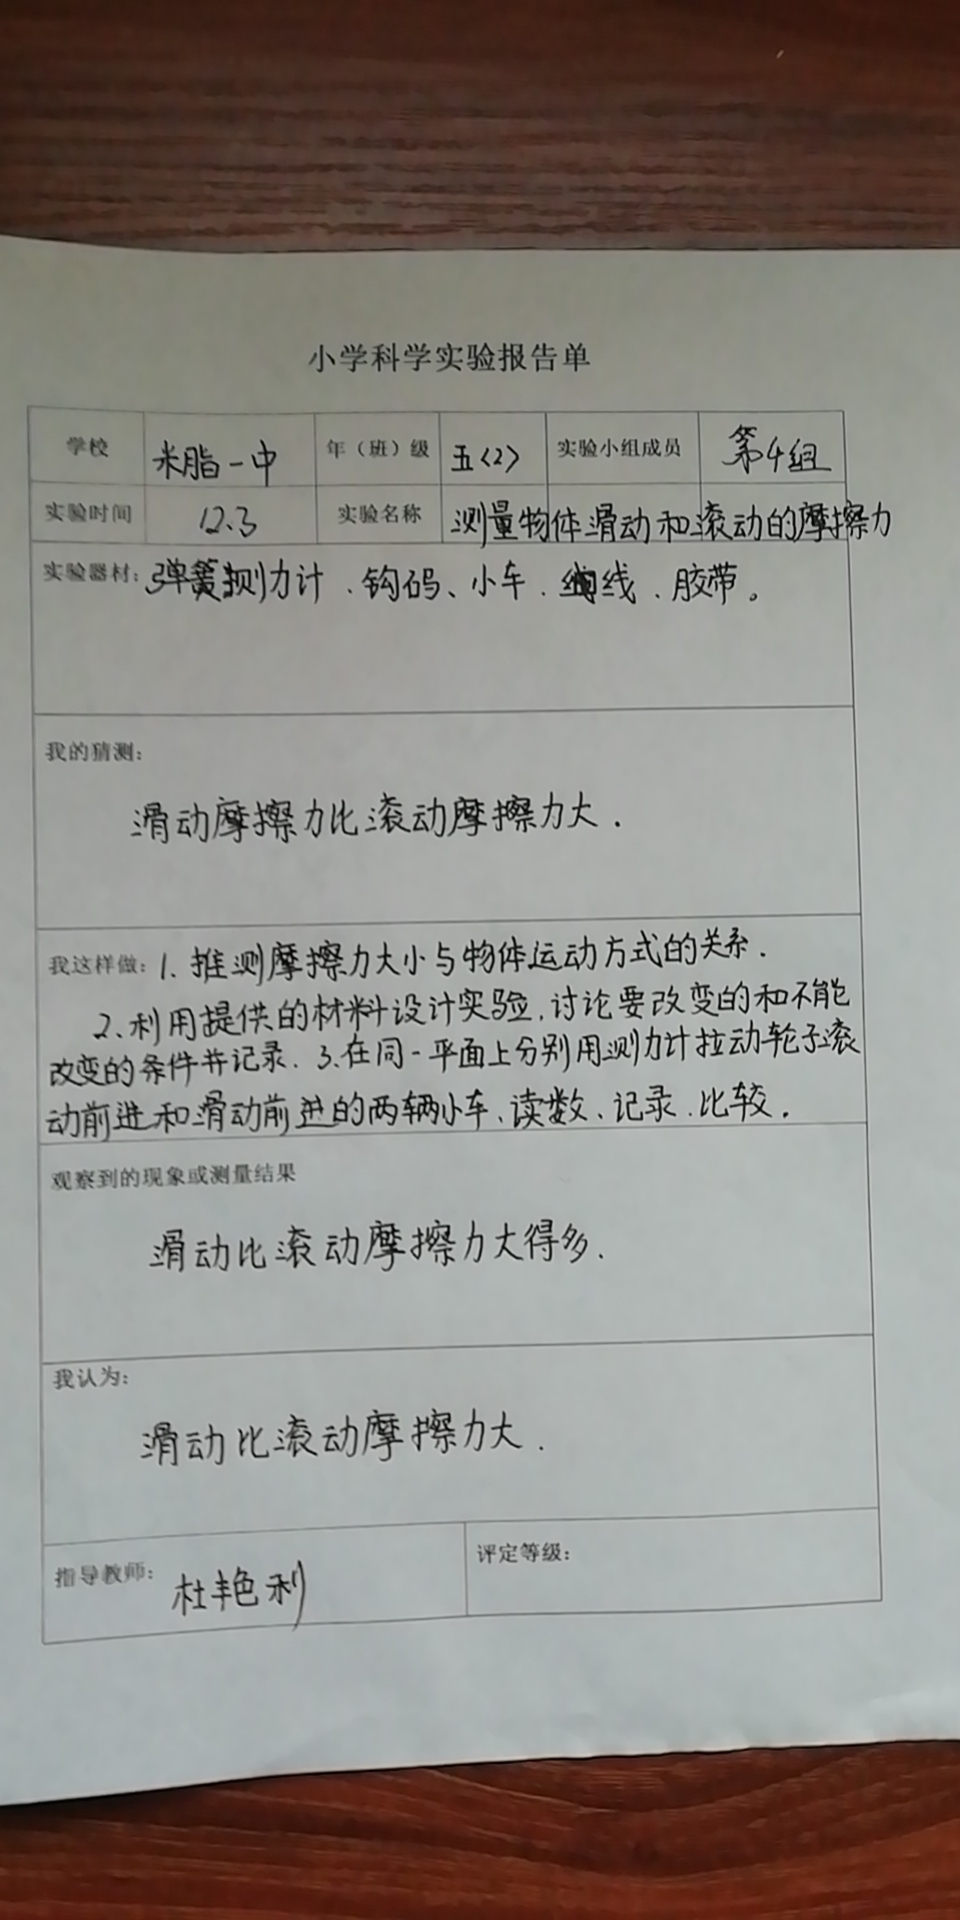 小学科学实验报告单
学校 米脂一中 年（班）级 五〈2〉 实验小组成员 第4组
实验时间 12.3 实验名称 测量物体滑动和滚动的摩擦力
实验器材：弹簧测力计、钩码、小车、线、胶带。
我的猜测：
滑动摩擦力比滚动摩擦力大.
我这样做：1.推测摩擦力大小与物体运动方式的关系.
2.利用提供的材料设计实验,讨论要改变的和不能
改变的条件并记录. 3.在同一平面上分别用测力计拉动轮子滚
动前进和滑动前进的两辆小车、读数、记录、比较.
观察到的现象或测量结果
滑动比滚动摩擦力大得多.
我认为：
滑动比滚动摩擦力大.
指导教师：杜艳利 评定等级：